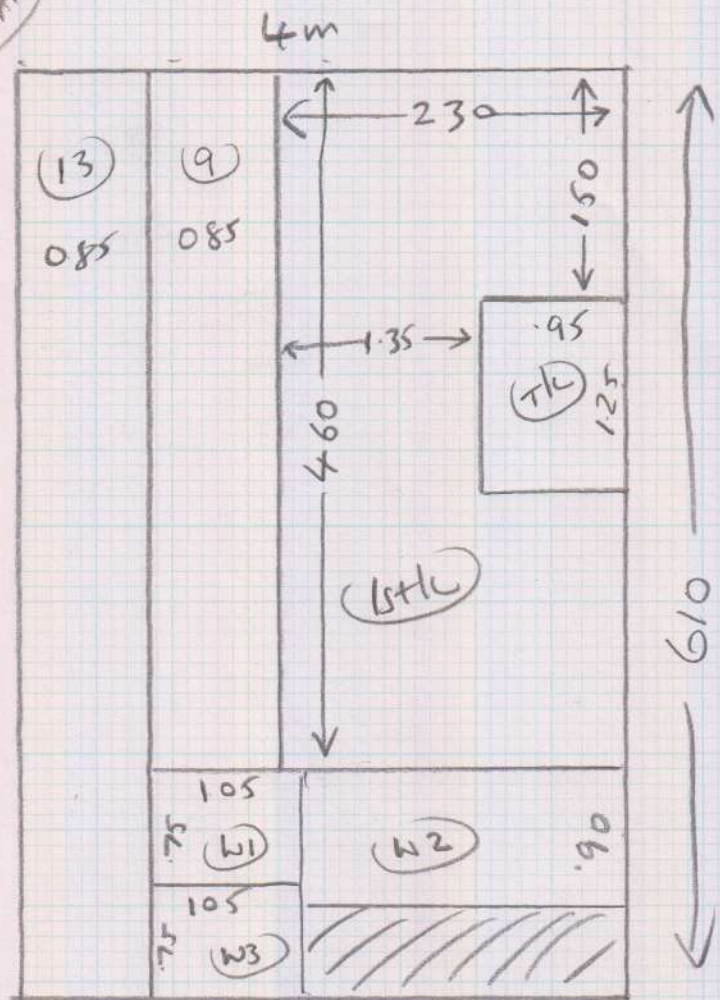 4m
230
13
9
150
085
085
.95
1.35
TK
1.25
460
610
105
.75
W1
W2
.90
105
.75
W3